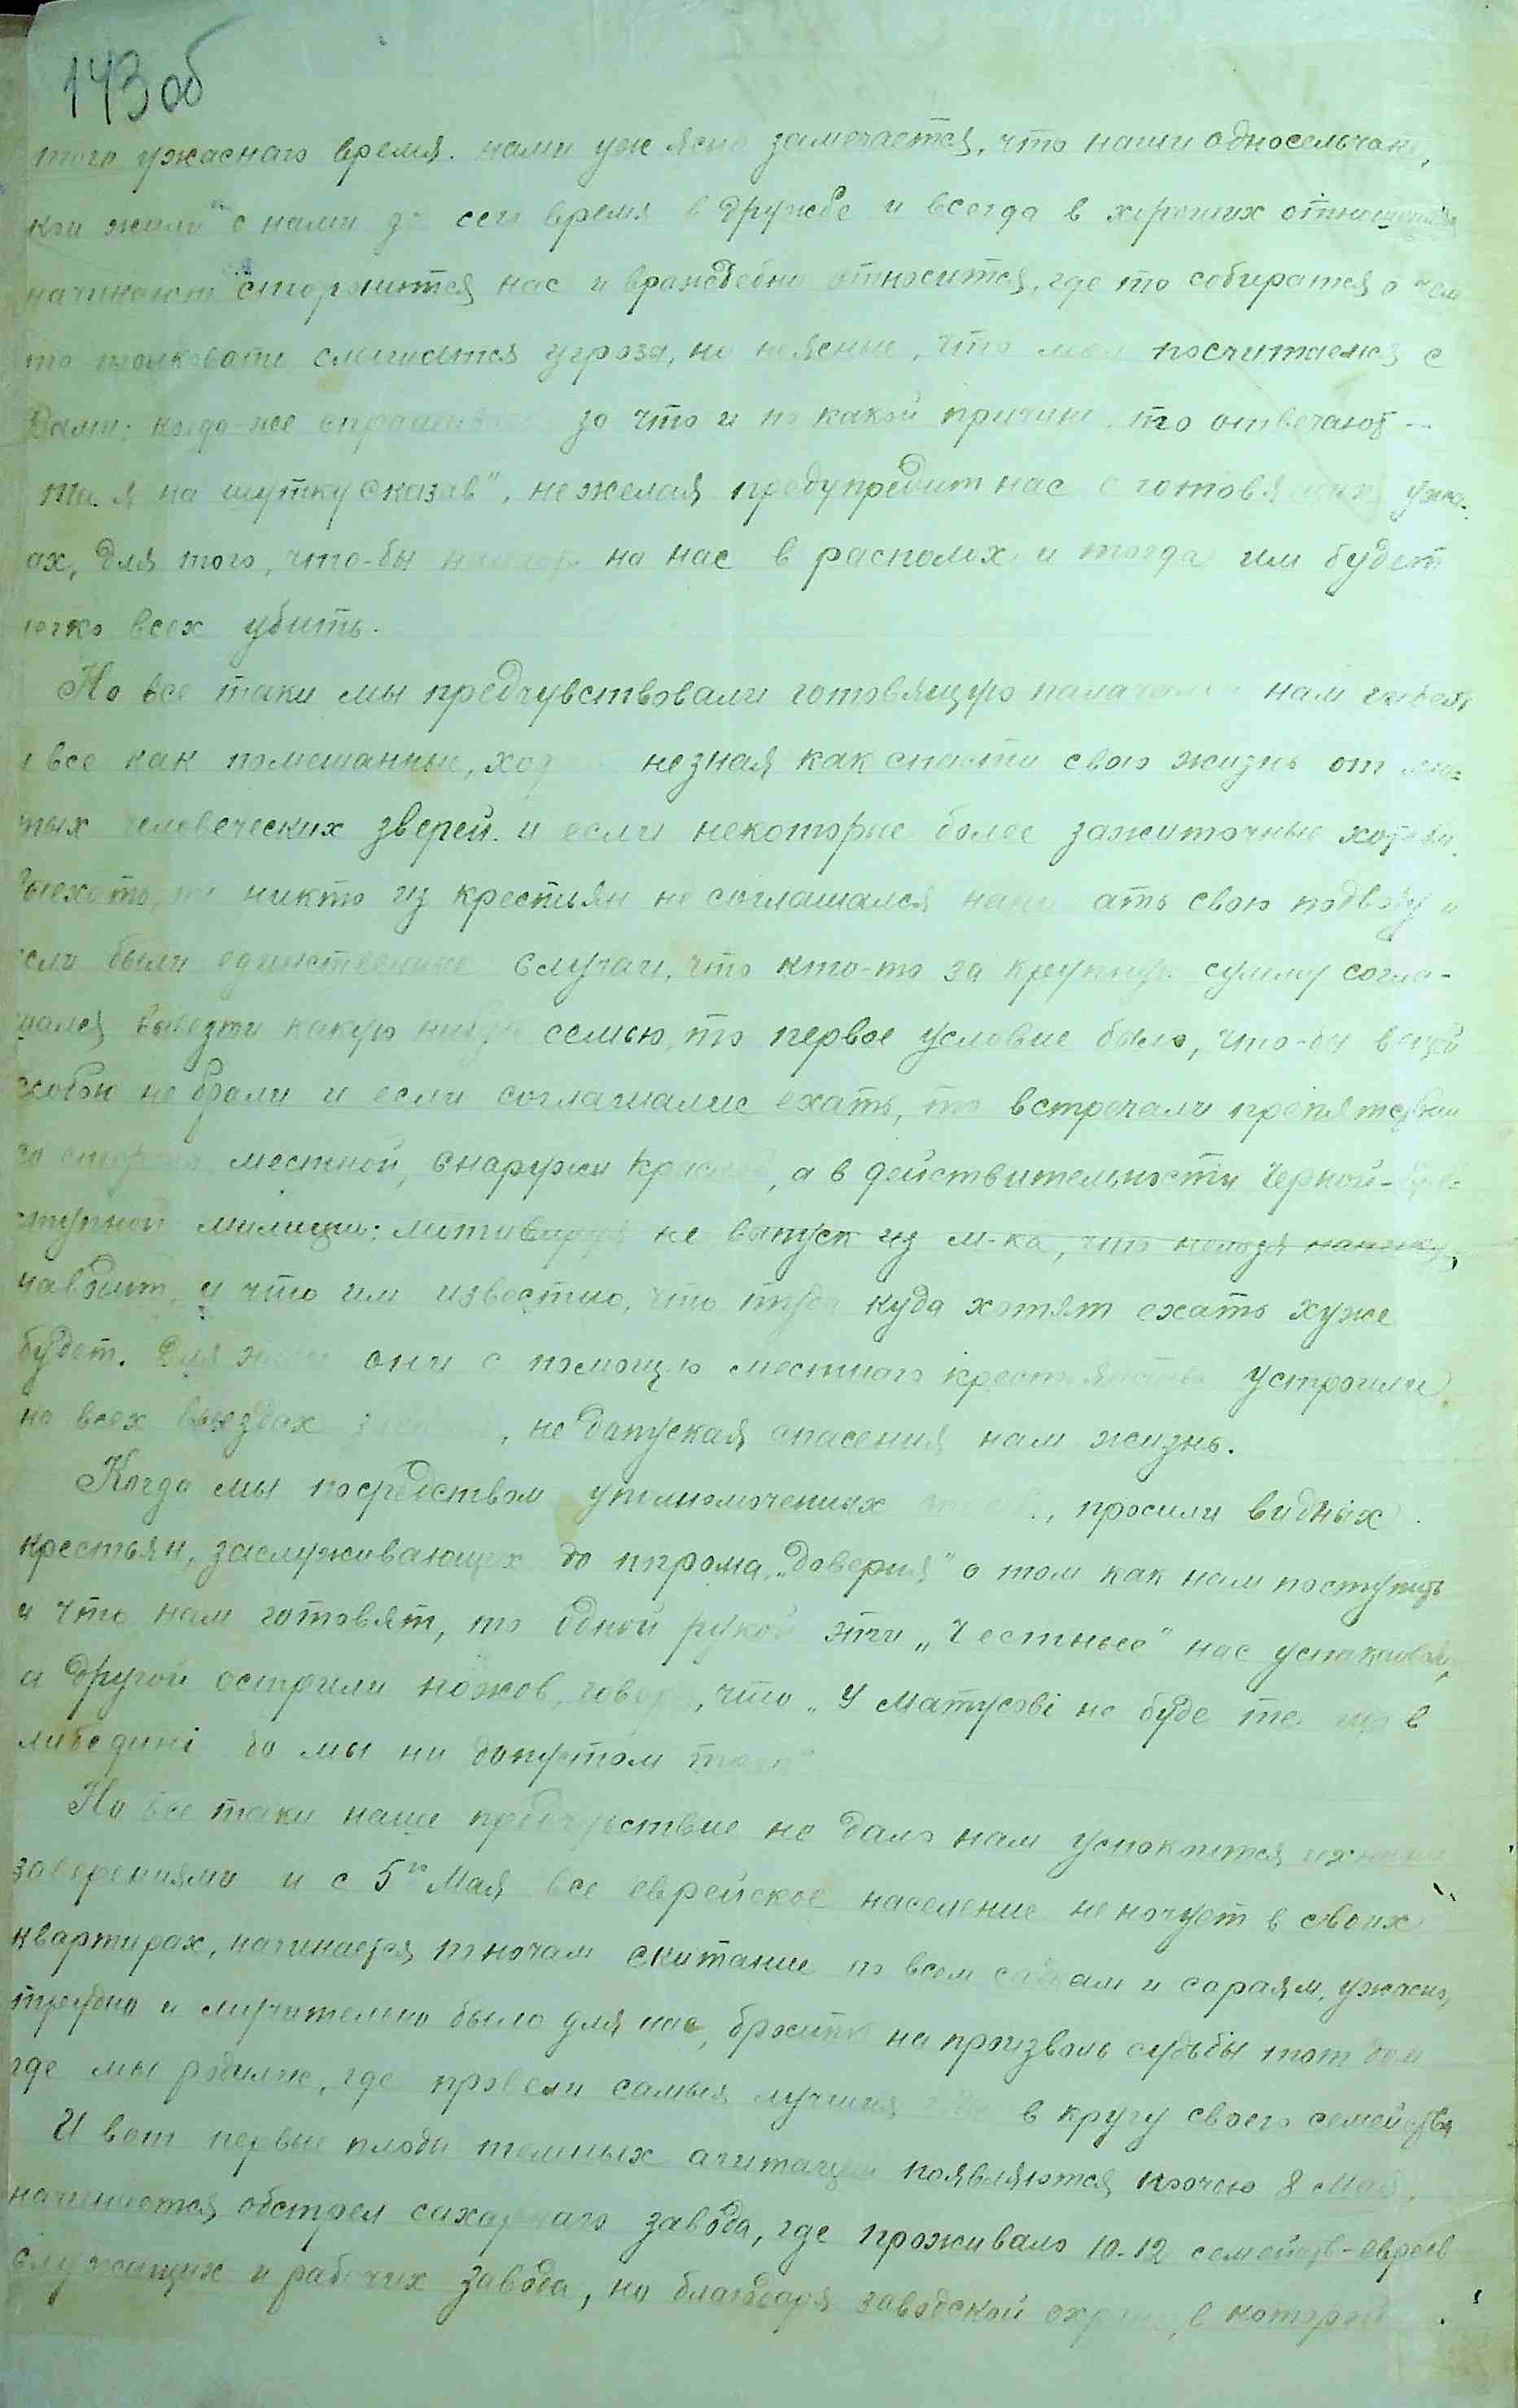 143 об
того ужаснаго время. нами уж ясно замечается, что наши односельчане,
кои жили с нами до сего время в дружбе и всегда в хороших отношениях
начинают сторонится нас и враждебно относится, где то собирается о чем
то толковать слышится угроза, но неясные, что мол посчитаемся с
Вами; когда-же спрашивают за что и по какой причине, то отвечают --
та я на шутку сказав", не желая предупредит нас о готовящихся ужа-
ах, для того, что-бы на нас в расплох и тогда им будет
легко всех убить.
Но все таки мы предчувствовали готовящую палачами нам гибель
и все как помешанные, незная как спасти свою жизнь от лю-
тых человеческих зверей. и если некоторые более зажиточные хотели
выехать, то никто из крестьян не соглашался нанимать свою подводу и
если были единственные случаи, что кто-то за крупную сумму согла-
шался вывезти какую нибудь семью, то первое условие было, что-бы вещей
собой не брали и если соглашались ехать, то встречали препятствии
со стороны местной, снаружи Красной, а в действительности Черной-
ступной милиции; мотивируя не выпуск из м-ка, что нельзя панику
наводит, и что им известно, что туда куда хотят ехать хуже
будет. Для они с помощью местнаго крестьянства устроили
на всех выездах , не допуская спасения нам жизнь.
Когда мы посредством уполномочениях , просили видных
крестьян, заслуживающих до погрома „доверия" о том как нам поступить
и что нам готовят, то одной рукой эти „честные" нас успакаивали,
а другой острили ножов, говоря, что „У Матусові не буде те що в
либедині бо мы ни допустом того"
Но все таки наше предчувствие не дало нам успокоится ихними
заверениями и с 5го Мая все еврейское население не ночует в своих
квартирах, начинается по ночам скитание по всем садкам и сараям, ужасно,
трудно и мучительно было для нас, бросить на произволь судьбы тот дом
где мы родились, где провели самыя лучшия в кругу своего семейства
И вот первые плоды темных агитации появляются ночью 8 Мая,
начинается обстрел сахарнаго завода, где проживало 10-12 семейств-евреев
служащих и рабочих завода, но благодаря заводской охране, в которой